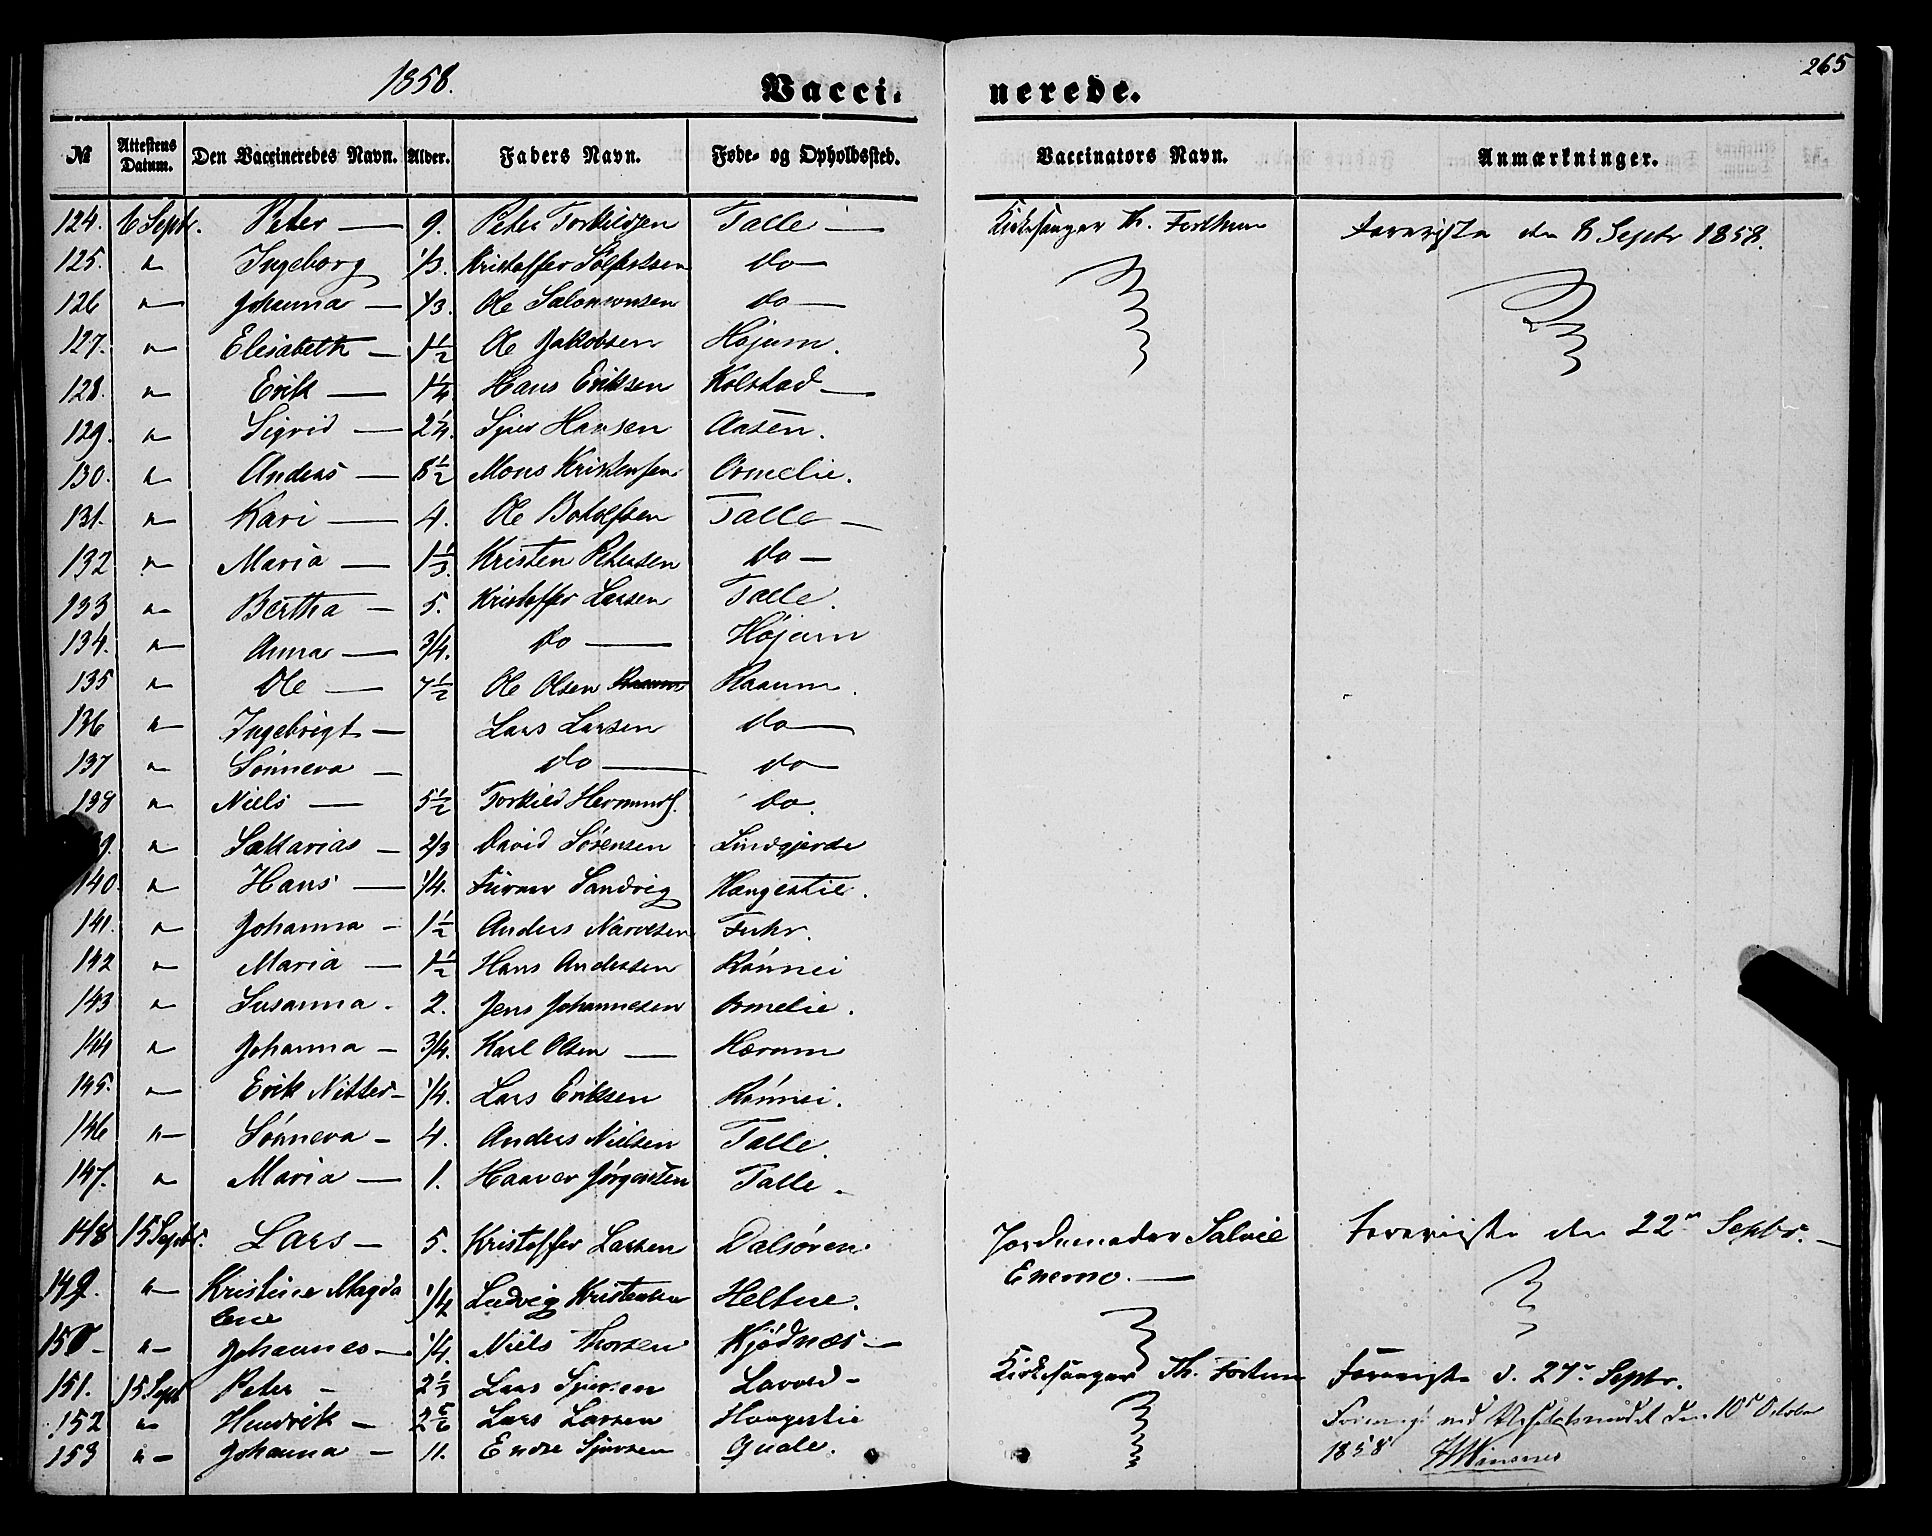 1858.
Vacci-
nerede.
265
№ Attestens Datum. Den Vaccineredes Navn. Alder. Faders Navn. Føde- og Opholdssted. Vaccinators Navn. Anmærkninger.
124. 6 Septr. Peter — 9. Peter Torkildsen Talle — Kirkesanger Th. Forthun foreviste den 8 Septr 1858.
125. " Ingeborg 1/3. Kristoffer do —
126 " Johanna — 1/3. Ole Salomonsen do —
127. " Elisabeth — 1 1/2 Ole Jakobsen Højum.
128. " Erik — 1 1/4 Hans Eriksen Kolstad —
129. " Sigrid — 2 1/4. Sjur Hansen Aasen.
130. " Anders — 8 1/2 Mons Kristensen Ormelie.
131. " Kari — 4. Ole Botolfsen Talle —
132 " Maria — 1 1/3. Kristen Petersen do —
133 " Bertha — 5. Kristoffer Larsen Talle.
134. " Anna — 3/4. do — Højum
135 " Ole — 7 1/2 Ole Olsen Raaum.
136 " Ingebrigt — Lars Larsen do —
137 " Sønneva — do — do
138 " Niels — 5 1/2 Torkild Hermunds. do.
9. " Sakarias — 2/3 David Sørensen Lindgjerde
140. " Hans — 1/4. Furner Sandvig Haugestie.
141. " Johanna — 1 1/2 Anders Narvesen Fuhr.
142 " Maria — 1 1/2 Hans Andersen Rønnei
143 " Susanna. 2. Jens Johannesen Ormelie.
144 " Johanna — 3/4. Karl Olsen — Hærum
145. " Erik Nitter — 1/4. Lars Eriksen Rønnei.
146 " Sønneva — 4. Anders Nielsen Talle.
147. " Maria — 1. Haaver Jørgensen Talle.
148 15 Septr. Lars — 5. Kristoffer Larsen Dalsøren. Jordemoder Salvie foreviste den 22n Septr. —
149. " Kristine Magda Ludvig Kristensen Heltne. Enemo. —
lene
150 — " Johannes — 1/4. Niels Thorsen Kjødnæs —
151. 15 Sept Peter — 2 1/3 Lars Sjursen Lavold — Kirkesanger Th. Fortun foreviste d. 27. Septr.
152 " Hendrik — 2 5/6 Lars Larsen Haugestie den 10de October
153 " Johanna — 11. Endre Sjursen Quale. 1858